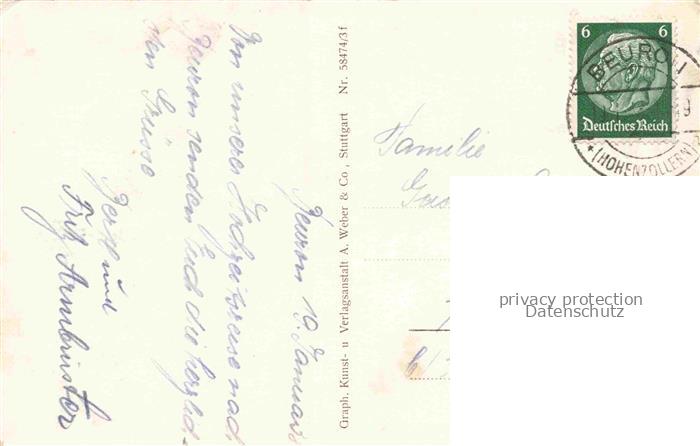 Beuron 10. Januar
Von unserer Hochzeitsreise nach
Beuron senden Euch die herzlich-
sten Grüsse
und
Fritz Armbruster
Graph. Kunst- u Verlagsanstalt A. Weber & Co, Stuttgart Nr. 58474/3f
6 6
Deutsches Reich
BEURON
(HOHENZOLLERN)
Familie
privacy protection
Datenschutz